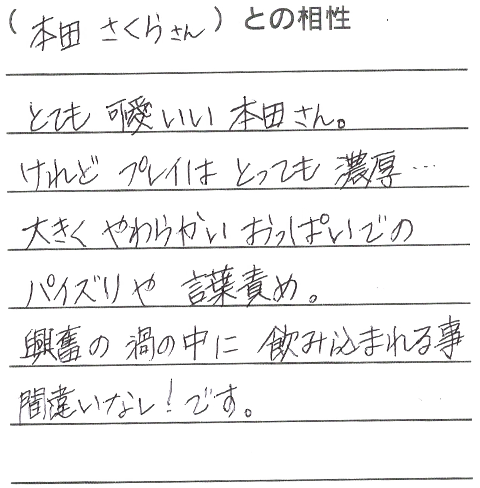 ( 本田 さくらさん ) との相性
とても 可愛いい 本田さん。
けれど プレイは とっても 濃厚…
大きく やわらかい おっぱいでの
パイズリや 言葉責め。
興奮の 渦の中に 飲み込まれる事
間違いなし!です。